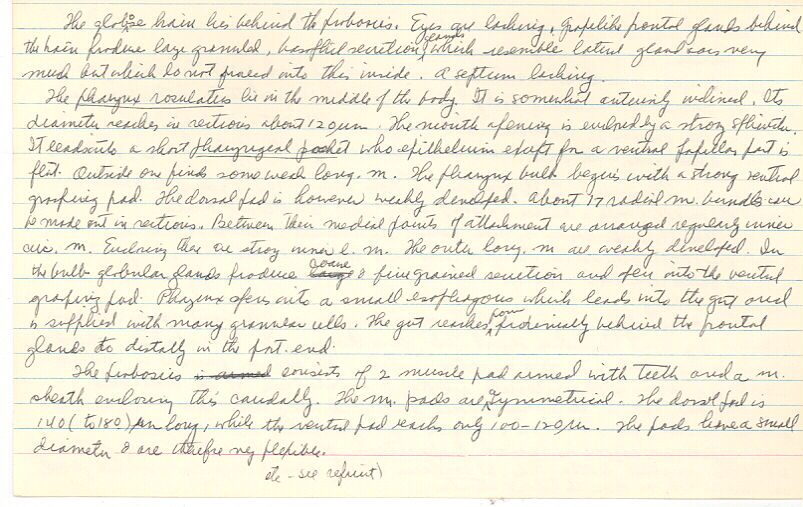 The globose brain lies behind the proboscis. Eyes are lacking. Grapelike frontal glands behind
the brain produce large granuled, basophil secretion, glands which resemble lateral gland sacs very
much but which do not proceed into this inside. A septum lacking.
The pharynx rosulatus lies in the middle of the body. It is somewhat anteriorly inclined. Its
diameter reaches in sections about 120 µm. The mouth opening is enclosed by a strong sphincter.
It leads into a short pharyngeal pocket who epithelium except for a ventral papillar part is
flat. Outside one finds some weak long. m. The pharynx bulb begins with a strong ventral
grasping pad. The dorsal pad is however weakly developed. About 17 radial m. bundles can
be made out in sections. Between their medial points of attachment are arranged regularly inner
cir. m. Enclosing they are strong inner l. m. The outer long. m are weakly developed. In
the bulb globular glands produce large coarse & fine grained secretion and open into the ventral
grasping pad. Pharynx opens into a small esophagous which leads into the gut and
is supplied with many granular cells. The gut reaches from proximally behind the frontal
glands to distally in the post. end.
The proboscis is armed consists of 2 muscle pad armed with teeth and a m.
sheath enclosing this caudally. The m. pads are symmetrical. The dorsal pad is
140 (to 180) µm long, while the ventral pad reaches only 100-120 µm. The pads have a small
diameter & are therefore very flexible.
etc - see reprint)